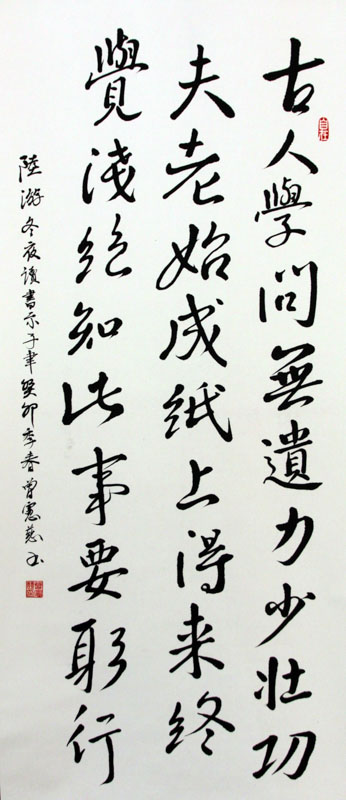 自在
古人學問無遺力少壯功
夫老始成紙上得来終
覺淺絕知此事要躬行
陸游冬夜讀書示子聿癸卯季春曾憲慈书